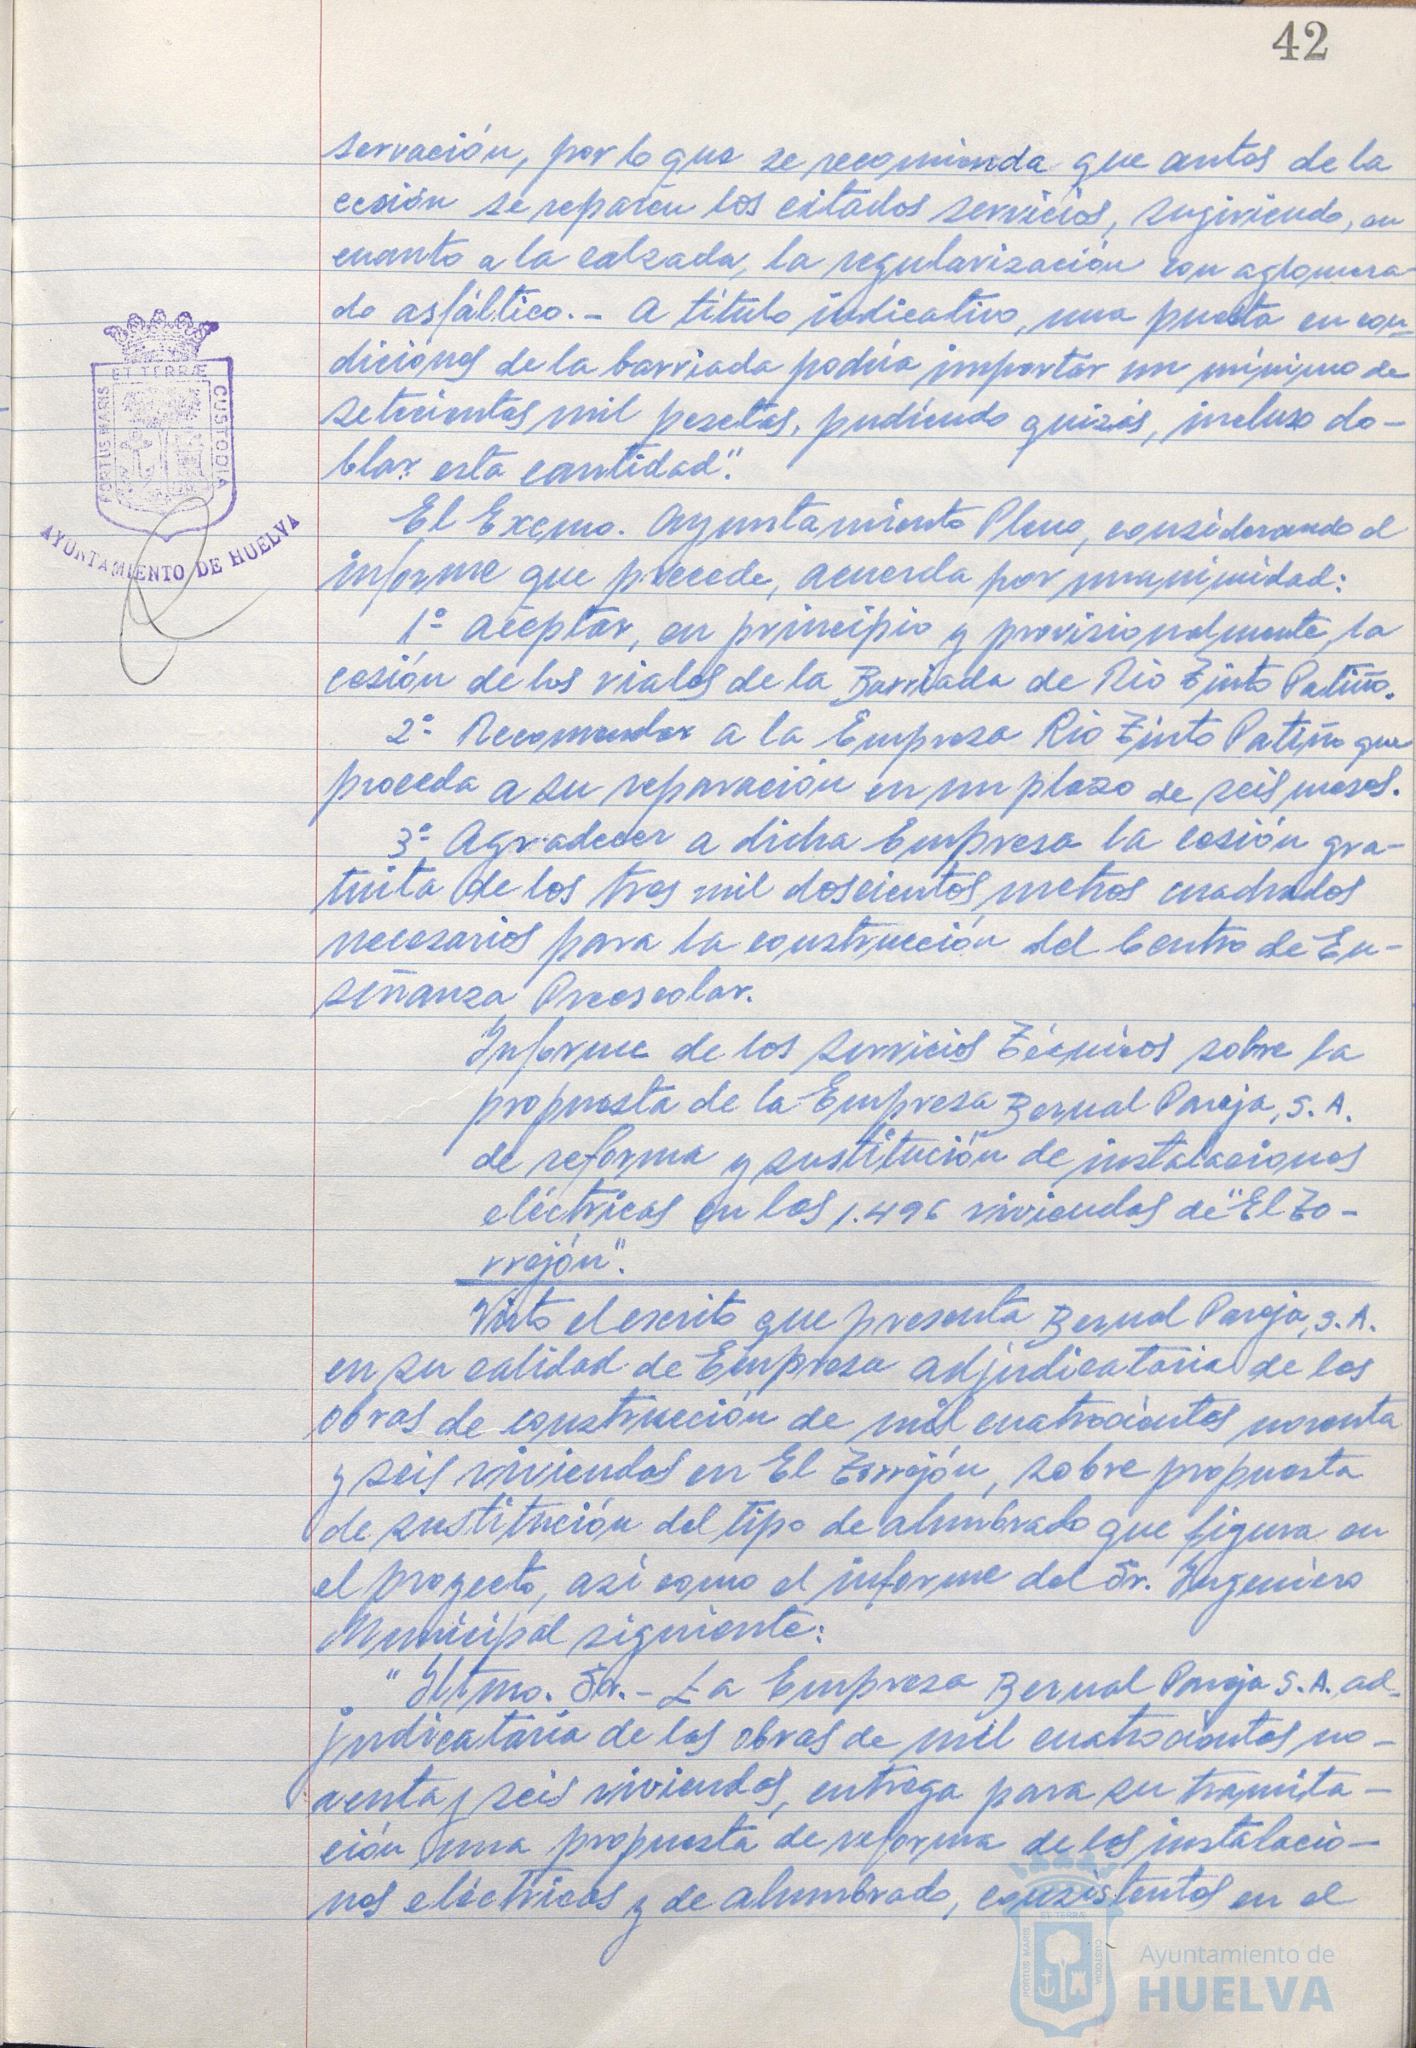 42
servación, por lo que se recomienda que antes de la
cesión se reparen los citados servicios, sugiriendo, en
cuanto a la calzada, la regularización con aglomera-
do asfáltico.- A título indicativo, una puesta en con-
diciones de la barriada podría importar un mínimo de
setecientas mil pesetas, pudiendo quizás, incluso do-
blar esta cantidad".
El Excmo. Ayuntamiento Pleno, considerando el
informe que precede, acuerda por unanimidad:
1º Aceptar, en principio y provisionalmente, la
cesión de los viales de la Barriada de Rio Tinto Patiño.
2º Recomendar a la Empresa Rio Tinto Patiño que
proceda a su reparación en un plazo de seis meses.
3º Agradecer a dicha Empresa la cesión gra-
tuita de los tres mil doscientos metros cuadrados
necesarios para la construcción del Centro de En-
señanza Preescolar.
Informe de los Servicios Técnicos sobre la
propuesta de la Empresa Bernal Pareja, S.A.
de reforma y sustitución de instalaciones
eléctricas en las 1.496 viviendas de "El To-
rrejón".
Visto el escrito que presenta Bernal Pareja, S.A.
en su calidad de Empresa adjudicataria de las
obras de construcción de mil cuatrocientos noventa
y seis viviendas en El Torrejón, sobre propuesta
de sustitución del tipo de alumbrado que figura en
el proyecto, así como el informe del Sr. Ingeniero
Municipal siguiente:
"Iltmo. Sr.- La Empresa Bernal Pareja S.A. ad-
judicataria de las obras de mil cuatrocientas no-
venta y seis viviendas, entrega para su tramita-
ción una propuesta de reforma de las instalacio-
nes eléctricas y de alumbrado, consistentes en el
PORTUS MARIS
ET TERRÆ
CUSTODIA
AYUNTAMIENTO DE HUELVA
PORTUS MARIS
ET TERRÆ
CUSTODIA
Ayuntamiento de
HUELVA